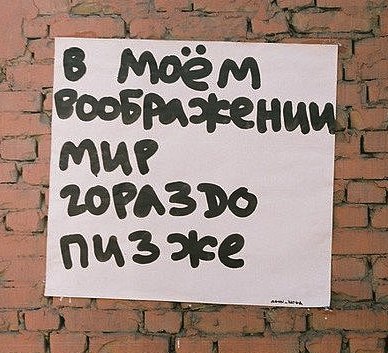 в моём
воображении
мир
гораздо
пизже